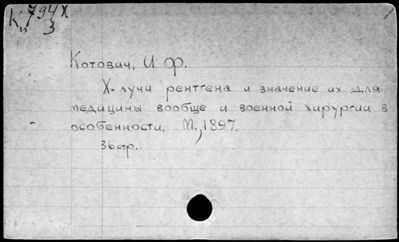 К 794х
3
Котович, И. Ф.
X-лучи рентгена и значение их для
медицины вообще и военной хирургии в
особенности. М., 1897.
36 стр.